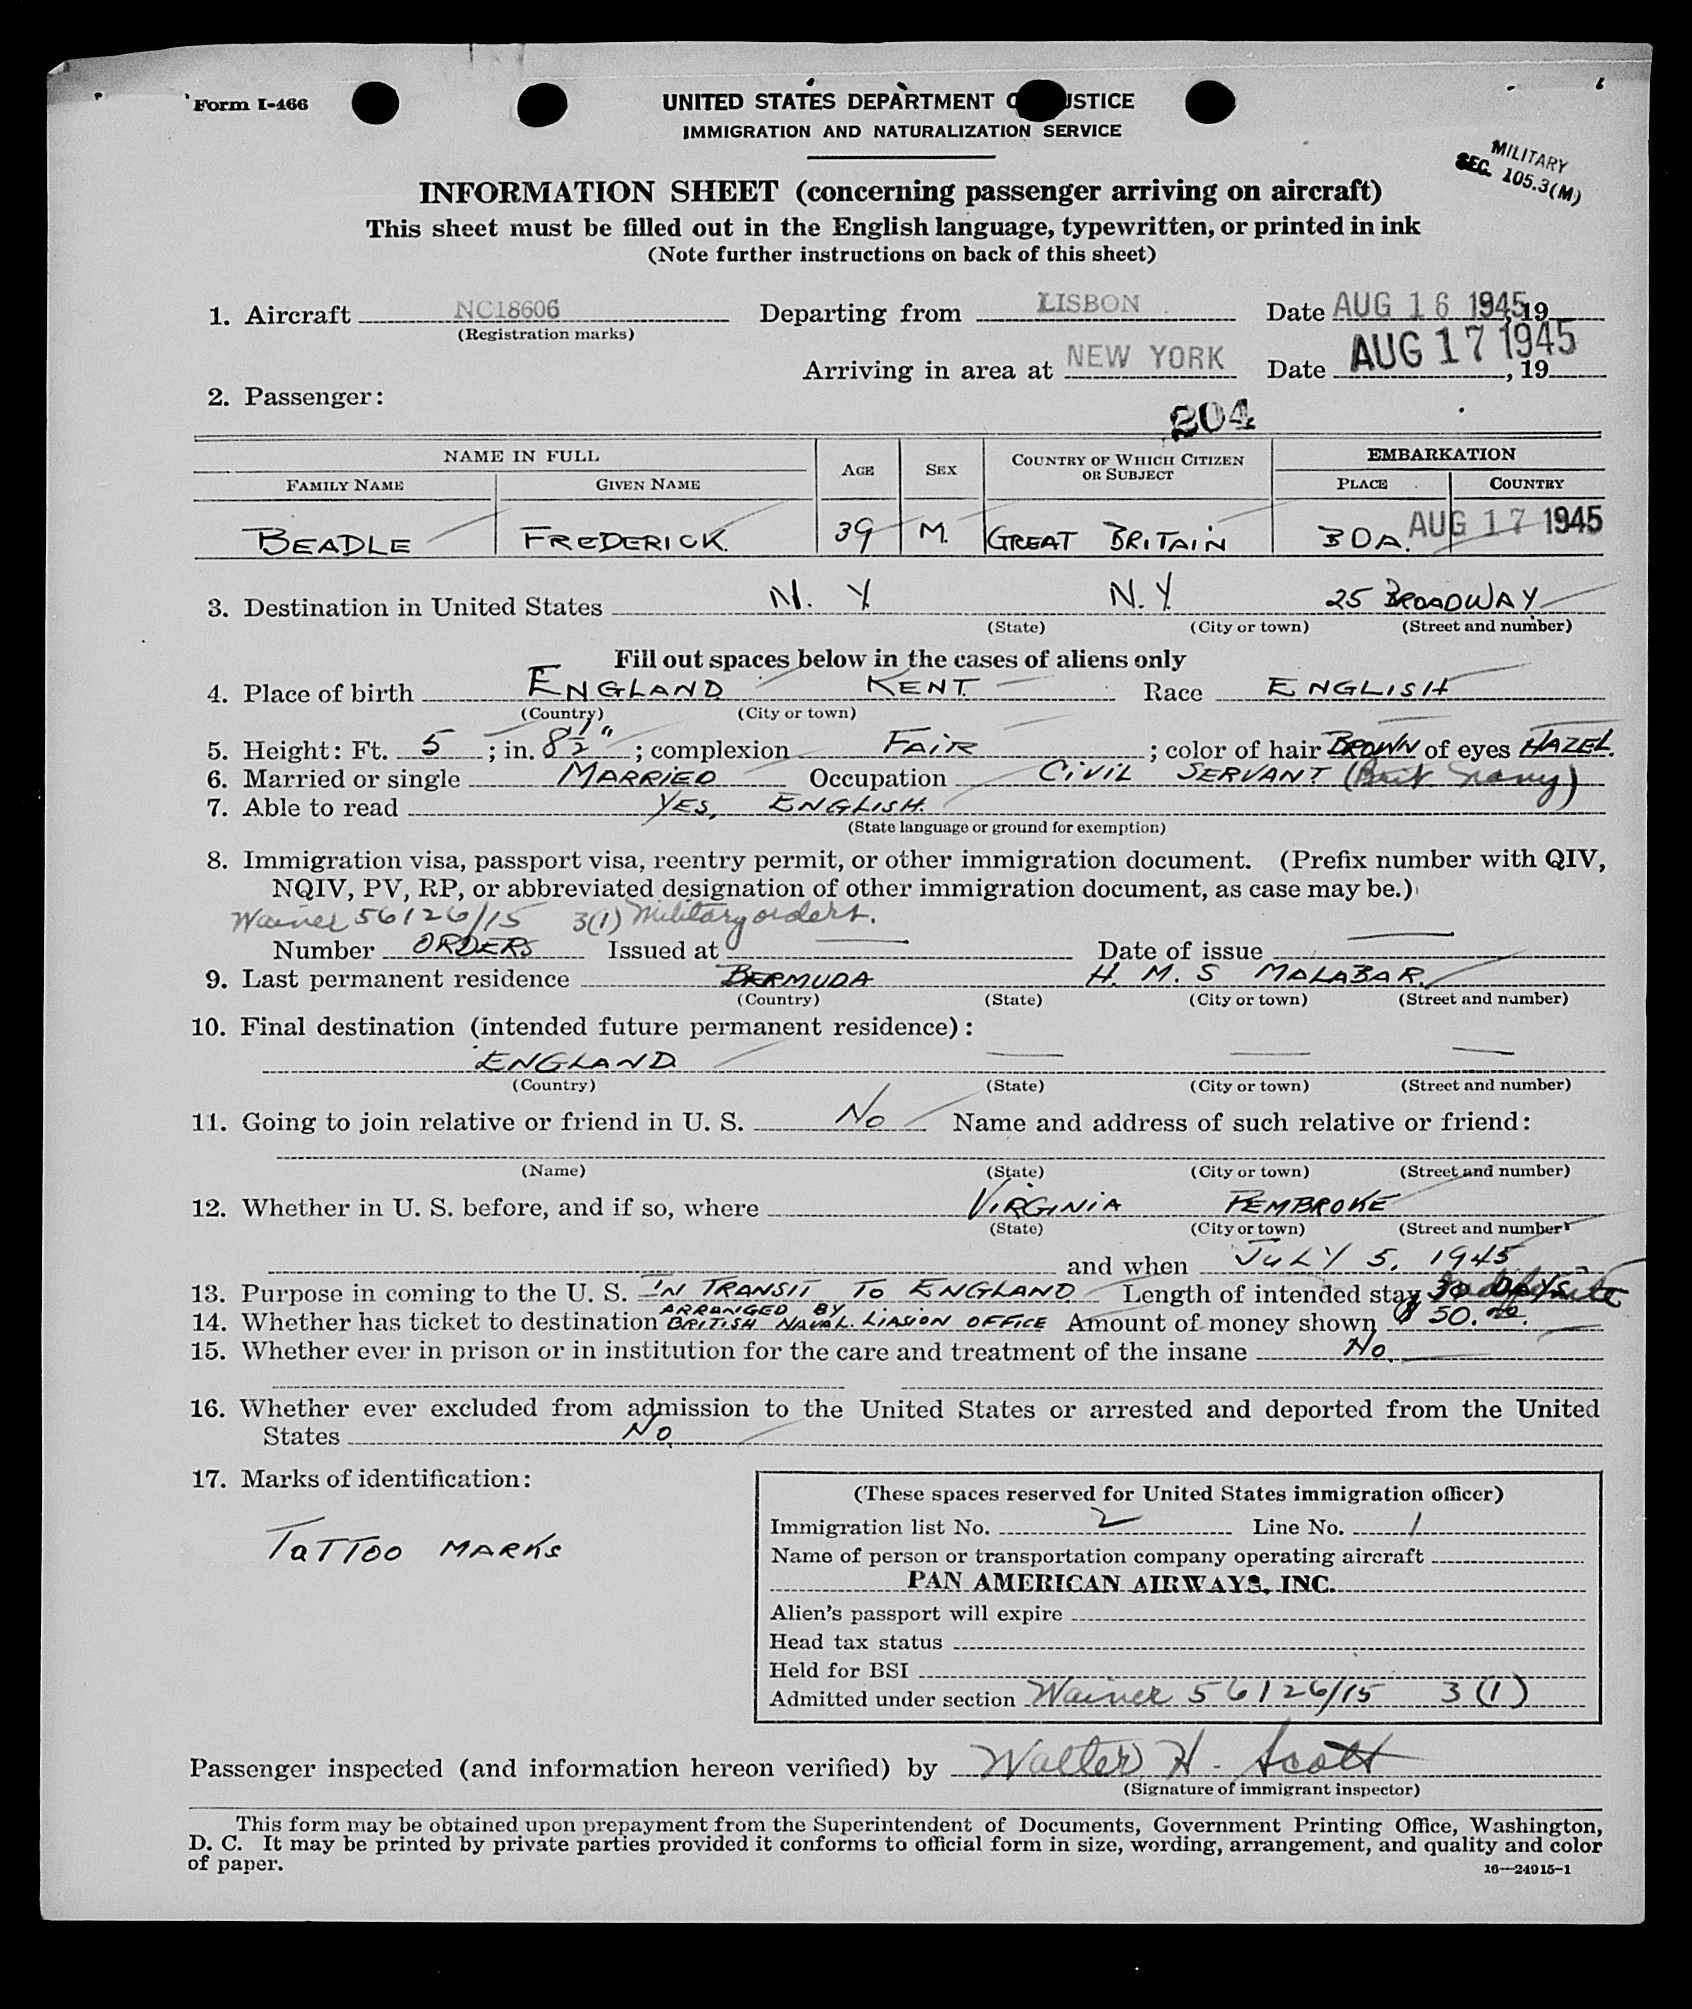 Form I-466
UNITED STATES DEPARTMENT O JUSTICE
IMMIGRATION AND NATURALIZATION SERVICE
MILITARY
SEC. 105.3(M)
INFORMATION SHEET (concerning passenger arriving on aircraft)
This sheet must be filled out in the English language, typewritten, or printed in ink
(Note further instructions on back of this sheet)
1. Aircraft NC18606 Departing from LISBON Date AUG 16 1945, 19
(Registration marks)
Arriving in area at NEW YORK Date AUG 17 1945, 19
2. Passenger:
204
NAME IN FULL AGE SEX COUNTRY OF WHICH CITIZEN OR SUBJECT EMBARKATION
FAMILY NAME GIVEN NAME PLACE COUNTRY
BEADLE FREDERICK. 39 M. GREAT BRITAIN BDA. AUG 17 1945
3. Destination in United States N. Y. N.Y. 25 BROADWAY
(State) (City or town) (Street and number)
Fill out spaces below in the cases of aliens only
4. Place of birth ENGLAND KENT. Race ENGLISH
(Country) (City or town)
5. Height: Ft. 5 ; in. 8½" ; complexion FAIR ; color of hair BROWN of eyes HAZEL.
6. Married or single MARRIED Occupation CIVIL SERVANT (Brit Navy)
7. Able to read YES, ENGLISH.
(State language or ground for exemption)
8. Immigration visa, passport visa, reentry permit, or other immigration document. (Prefix number with QIV,
NQIV, PV, RP, or abbreviated designation of other immigration document, as case may be.)
Waiver 56126/15 3(1) Military orders.
Number ORDERS Issued at — Date of issue —
9. Last permanent residence BERMUDA H. M. S MALABAR.
(Country) (State) (City or town) (Street and number)
10. Final destination (intended future permanent residence):
ENGLAND — — —
(Country) (State) (City or town) (Street and number)
11. Going to join relative or friend in U. S. No Name and address of such relative or friend:
(Name) (State) (City or town) (Street and number)
12. Whether in U. S. before, and if so, where VIRGINIA PEMBROKE
(State) (City or town) (Street and number)
and when JULY 5, 1945
13. Purpose in coming to the U. S. IN TRANSIT TO ENGLAND Length of intended stay 30 DAYS. Indefinite
14. Whether has ticket to destination ARRANGED BY BRITISH NAVAL LIASION OFFICE Amount of money shown $ 50.00.
15. Whether ever in prison or in institution for the care and treatment of the insane No.
16. Whether ever excluded from admission to the United States or arrested and deported from the United
States No.
17. Marks of identification:
TATTOO MARKS
(These spaces reserved for United States immigration officer)
Immigration list No. 2 Line No. 1
Name of person or transportation company operating aircraft
PAN AMERICAN AIRWAYS, INC.
Alien's passport will expire
Head tax status
Held for BSI
Admitted under section Waiver 56126/15 3(1)
Passenger inspected (and information hereon verified) by Walter H. Scott
(Signature of immigrant inspector)
This form may be obtained upon prepayment from the Superintendent of Documents, Government Printing Office, Washington,
D. C. It may be printed by private parties provided it conforms to official form in size, wording, arrangement, and quality and color
of paper.
16—24915-1